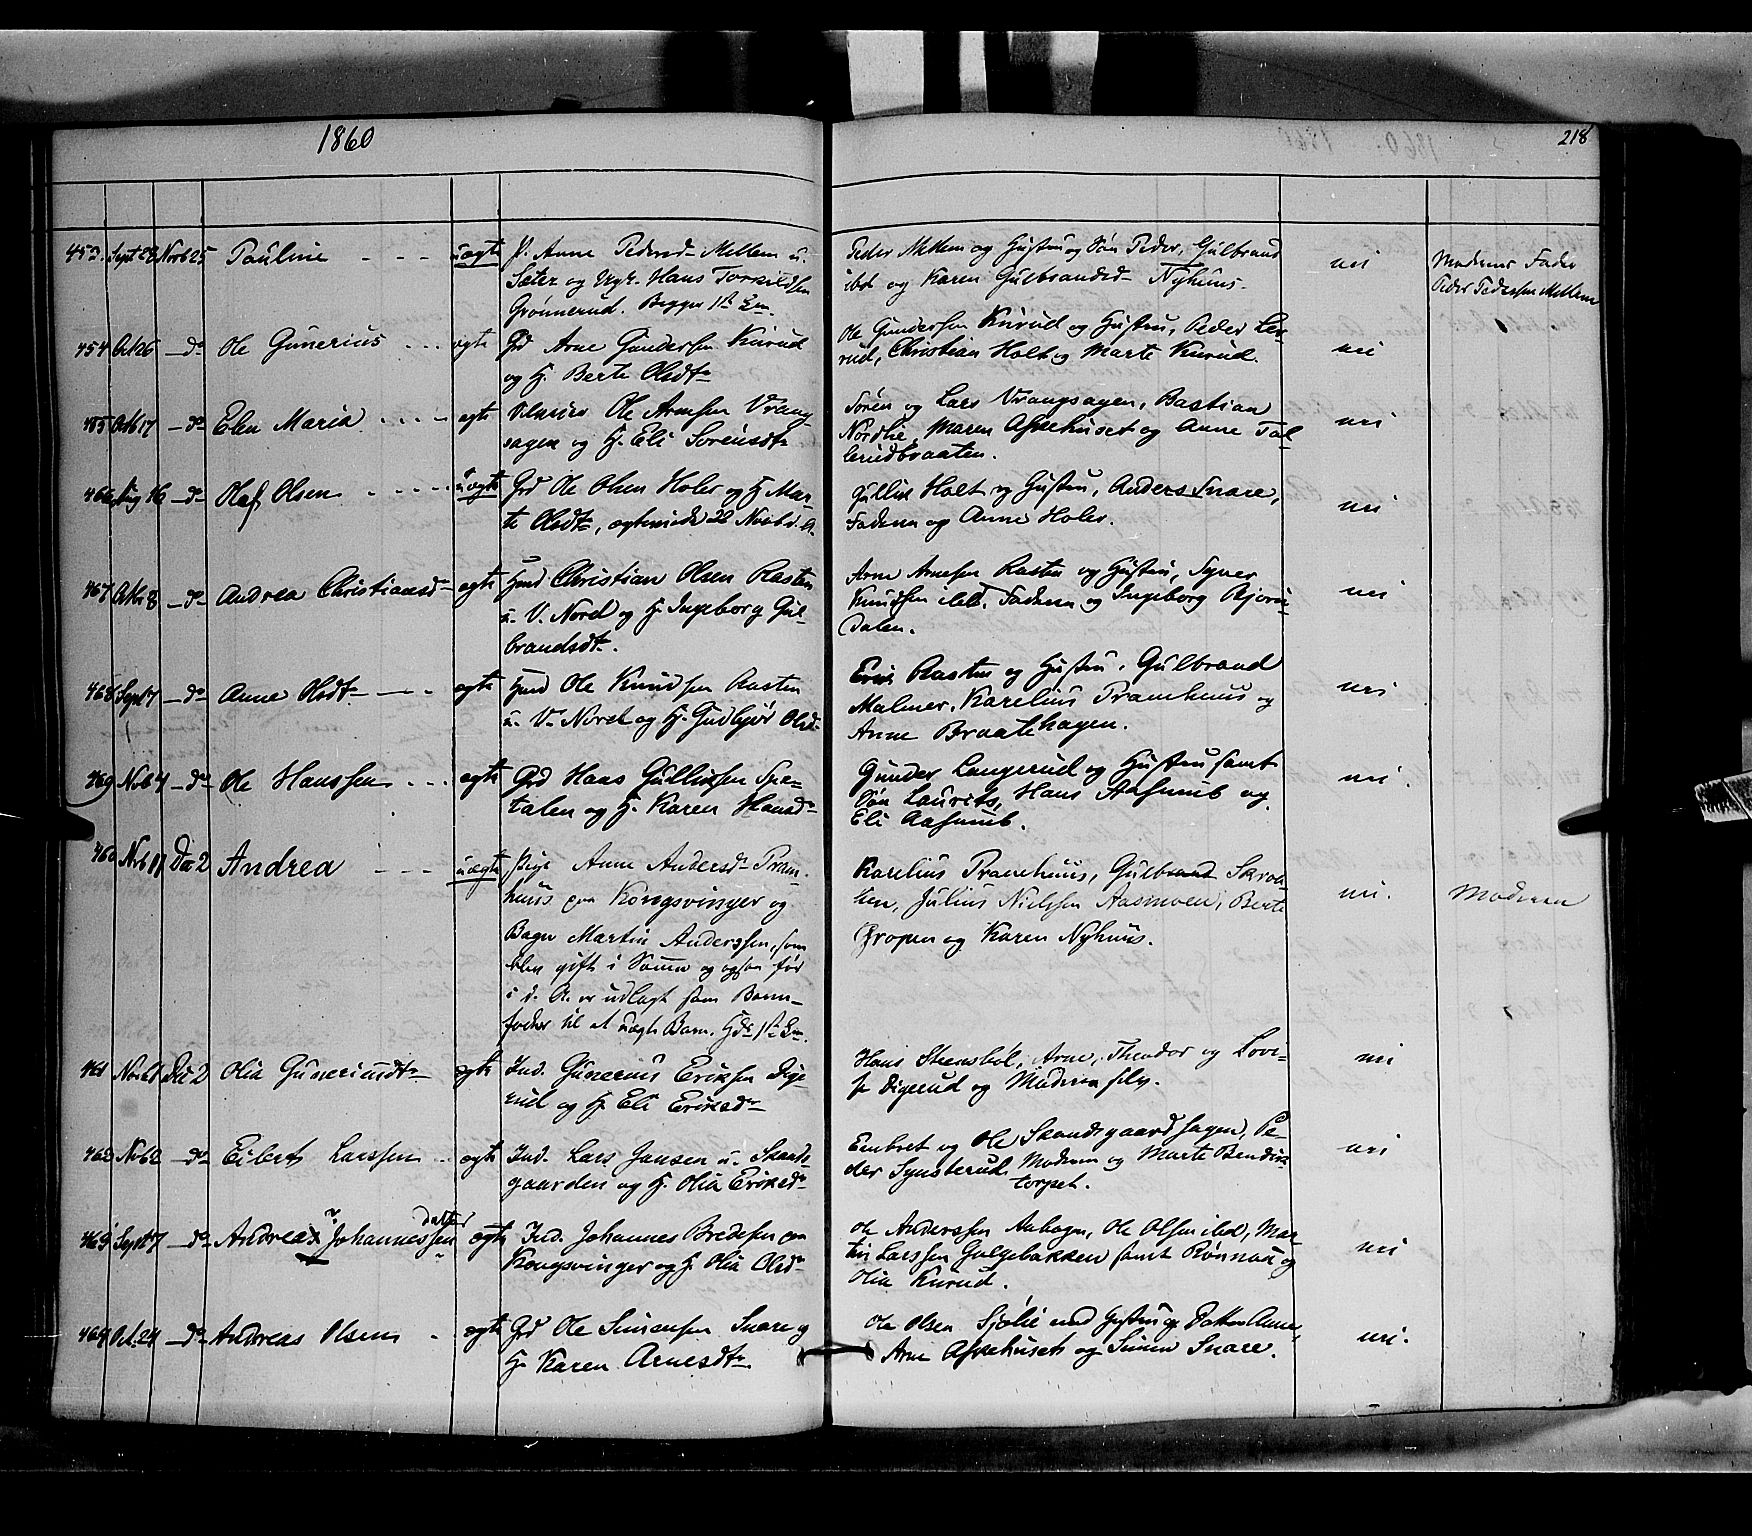 1860
218
453. Sept 23 Novb 25 Pauline uægte P. Anne Pedersd- Mellem u.
Sæter og Ungk. Hans Torkildsen
Grønnerud. Begges 1ste Lm.
Peder Mellem og Hustru og Søn Peder, Gulbrand
ibd og Karen Gulbrandsd- Nyhuus.
nei
Moderens Fader
Peder Pedersen Mellem
454 Oct 26 -do Ole Gunerius ægte Grd Arne Gundersen Knrud
og H. Berte Olsdtr
Ole Gundersen Knrud og Hustru, Peder Le-
rud, Christian Holt og Marte Knrud.
nei
455 Octb 17 -do Elen Maria ægte Ole Arnesen Vrang
sagen og H. Eli Sørensdtr
Søren og Lars Vrangsagen, Bastian
Nordlie, Maren Askehuset og Anne Tal
lerudbraaten.
nei
466 Aug 16 -do Olaf Olsen uægte Grd Ole Olsen Holer og H Mar-
te Olsdtr, ægteviede 22 Novbr d. A.
Gullik Holt og Hustru, Anders Snare,
Faderen og Anne Holer.
nei
467 Octbr 8 -do Andrea Christiansdr ægte Hmd Christian Olsen Rasten
u. V. Noret og H. Ingeborg Gul-
brandsdtr.
Arne Arnesen Rasten og Hustru, Syver
Knudsen ibd, Faderen og Ingeborg Bjørn-
dalen.
nei
468 Sept 7 -do Anne Olsdtr ægte Hmd Ole Knudsen Rasten
u. V. Noret og H. Gudbjør Olsd-
Erik Rasten og Hustru, Gulbrand
Malmer, Karelius Pramhuus og
Anne Braatehagen.
nei
469 Novb 7 -do Ole Hanssen ægte Grd Hans Gulliksen Spe-
talen og H. Karen Hansdr
Gunder Langerud og Hustru samt
Søn Laurits, Hans Aasumb og
Eli Aasumb.
nei.
460 Novb 11 Dec 2 Andrea uægte Pige Anne Andersdr Pram-
huus paa Kongsvinger og
Bager Martin Anderssen, som
blev gift i Somm og ogsaa før
i d. A. er udlagt som Barne-
fader til et uægte Barn. Hds 1ste Lm.
Karelius Pramhuus, Gulbrand Skrok-
ken, Julius Nielssen Aasmoen, Berte
Gropen og Karen Nyhuus.
nei.
Moderen
461 Novb 1 Dec 2 Olia Guneriusdtr ægte Ind. Gunerius Eriksen Dige-
rud og H. Eli Eriksdr
Hans Steenbøl, Arne, Theodor og Lovi-
se Digerud og Moderen selv.
nei
462 Novb 2 -do Eilert Larssen ægte Ind. Lars Jansen u. Skands-
gaarden og H. Olia Eriksdr
Embret og Ole Skandsgaardshagen, Pe-
der Synsterud Moderen og Marte Bendik
torpet.
nei
463 Sept 7 -do Andreas Johannessen datter ægte Ind. Johannes Bredesen paa
Kongsvinger og H. Olia Olsdr
Ole Anderssen Aabogen, Ole Olsen ibd, Mar-
tin Larssen Galgebakken samt Rønnau og
Olia Knrud.
nei
464 Oct. 24 -do Andreas Olsen ægte Grd Ole Simensen Snare og
H. Karen Arnesdtr
Ole Olsen Sjølie med Hustru og Datter Anne,
Arne Askehuset og Simen Snare.
nei.